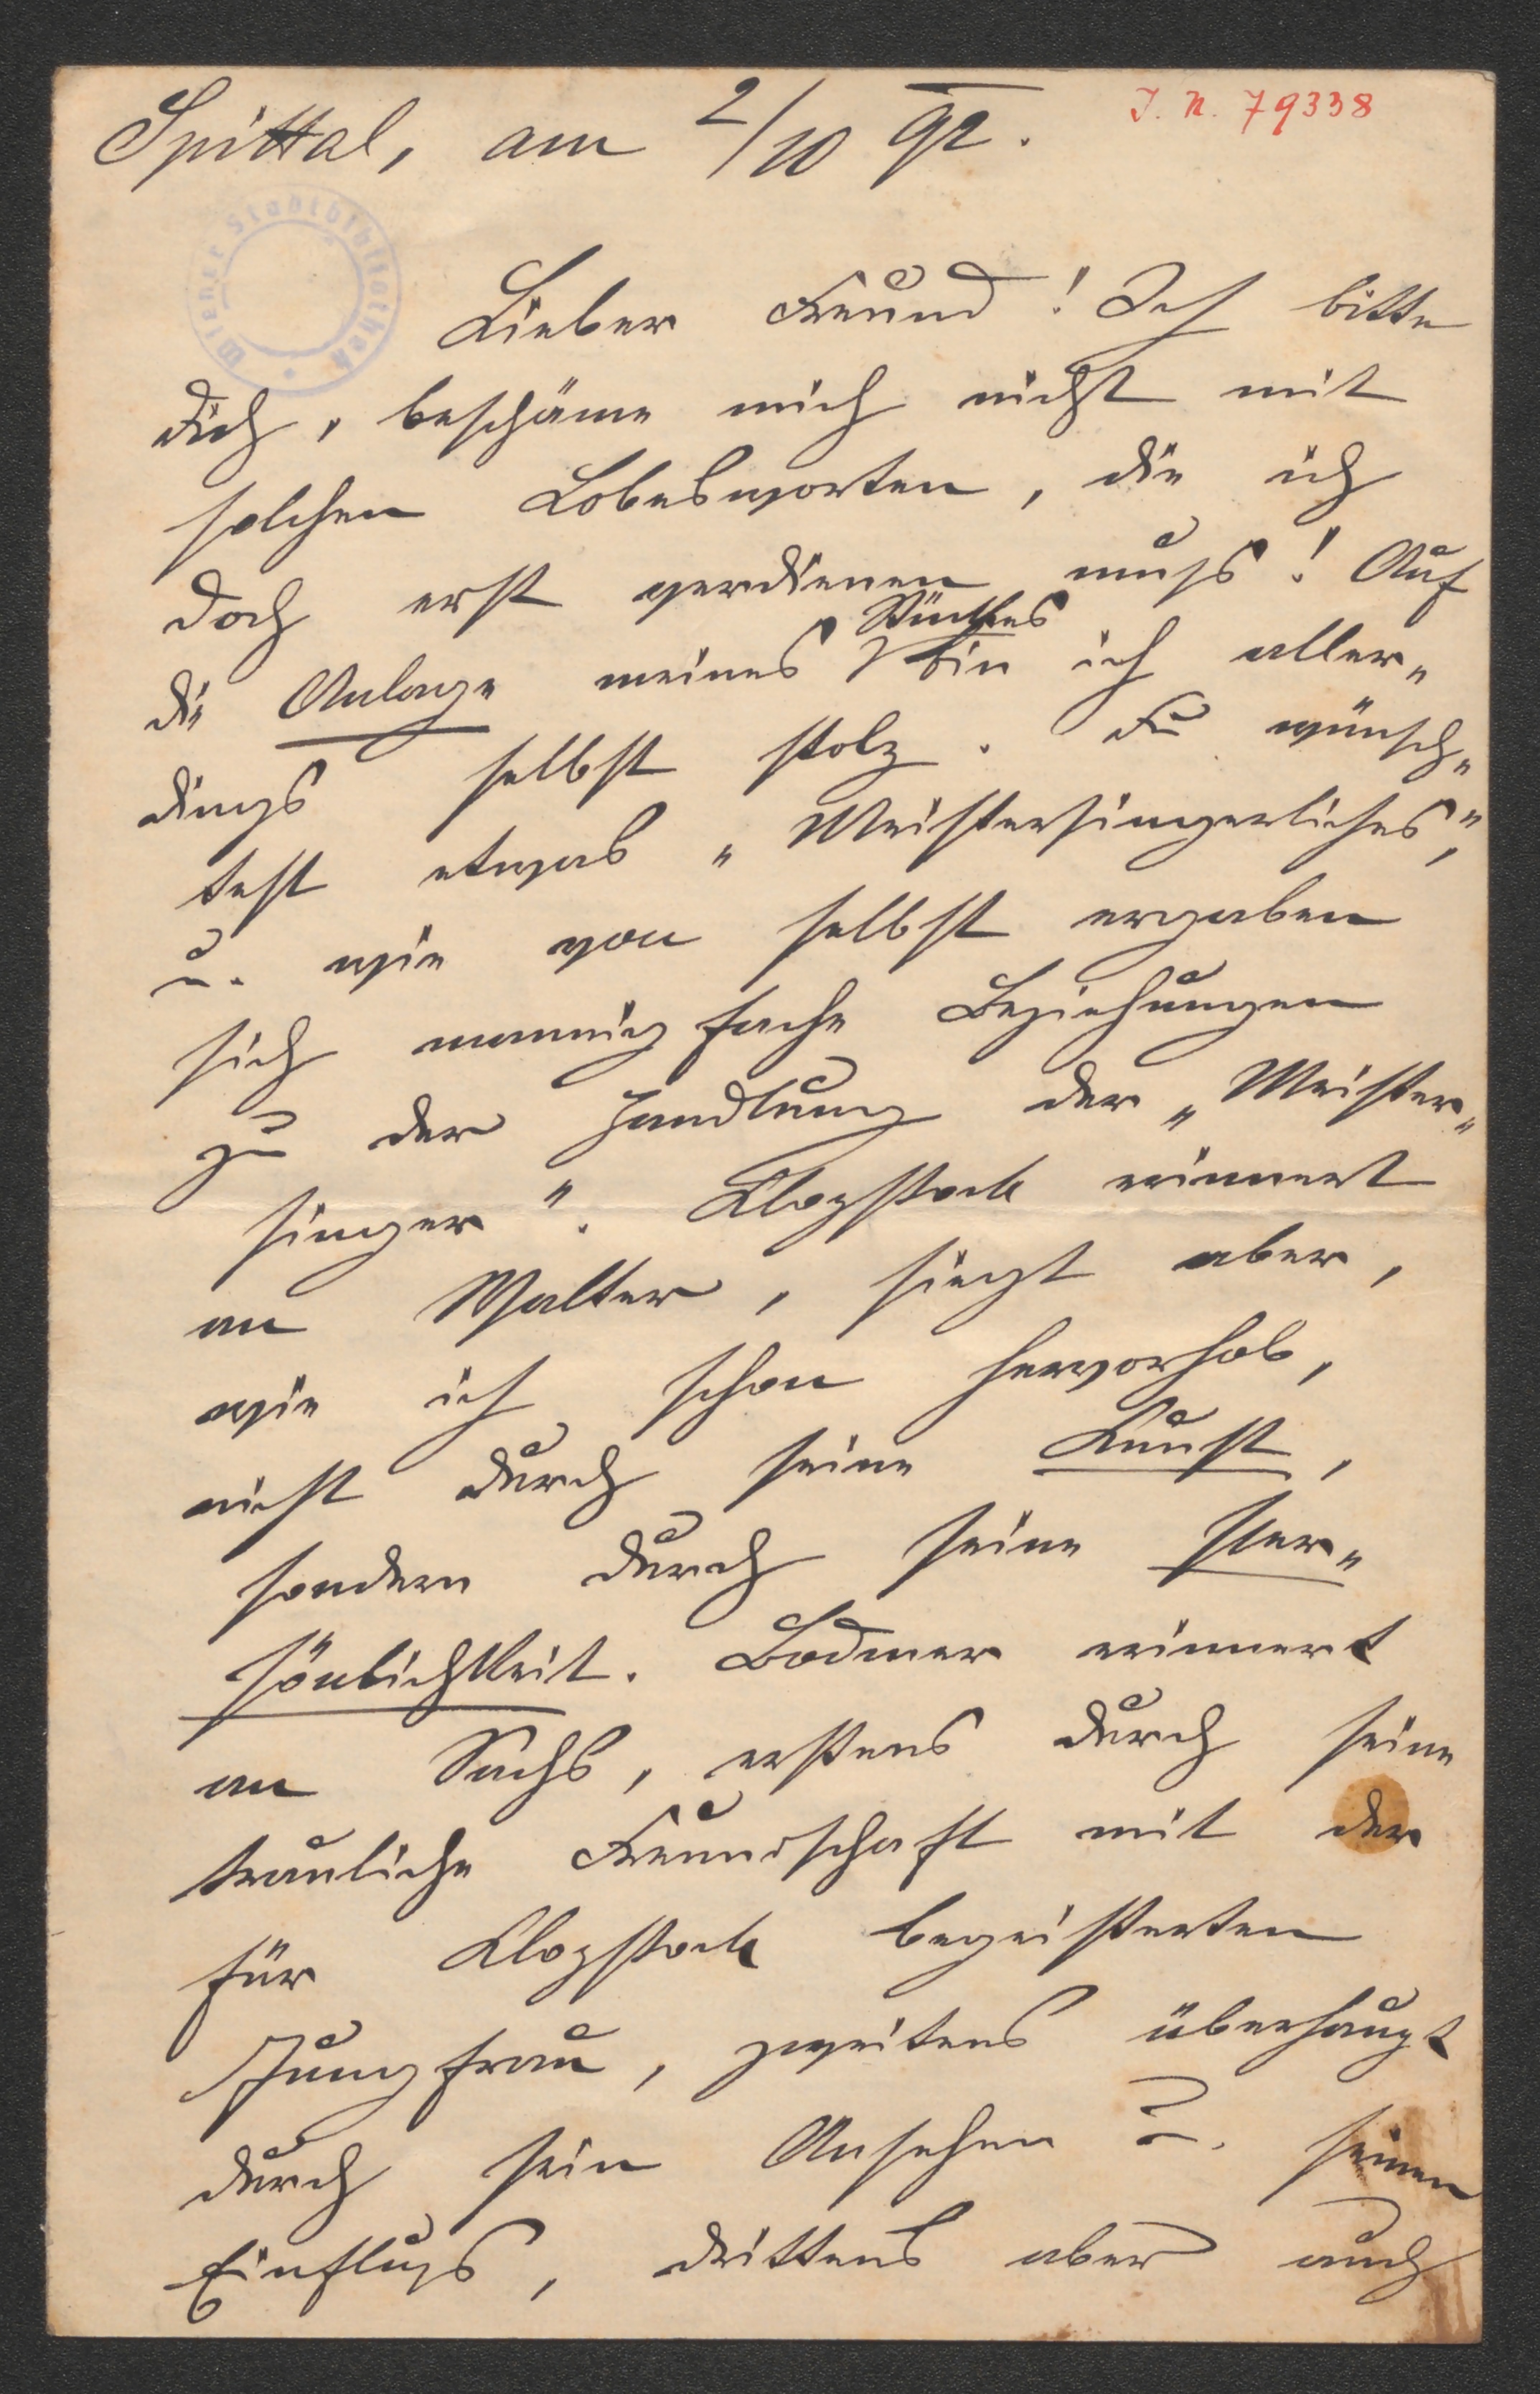 J. N. 79338
Spittal, am 2/10 92.
Wiener Stadtbibliothek
Lieber Freund! Ich bitte
dich, beschäme mich nicht mit
solchen Lobesworten, die ich
doch erst verdienen muß! Auf
Stückes
die Anlage meines bin ich aller„
dings selbst stolz. Du wünsch„
test etwas „Meistersingerliches“,
u. wie von selbst ergaben
sich mannigfache Beziehungen
zu der Handlung der „Meister„
singer“. Klopstock erinnert
an Walter, siegt aber,
wie ich schon hervorhob,
nicht durch seine Kunst,
sondern durch seine Per„
sönlichkeit. Bodmer erinnert
an Sachs, erstens durch seine
trauliche Freundschaft mit der
für Klopstock begeisterten
Jungfrau, zweitens überhaupt
durch sein Ansehen u. seinen
Einfluß, drittens aber auch